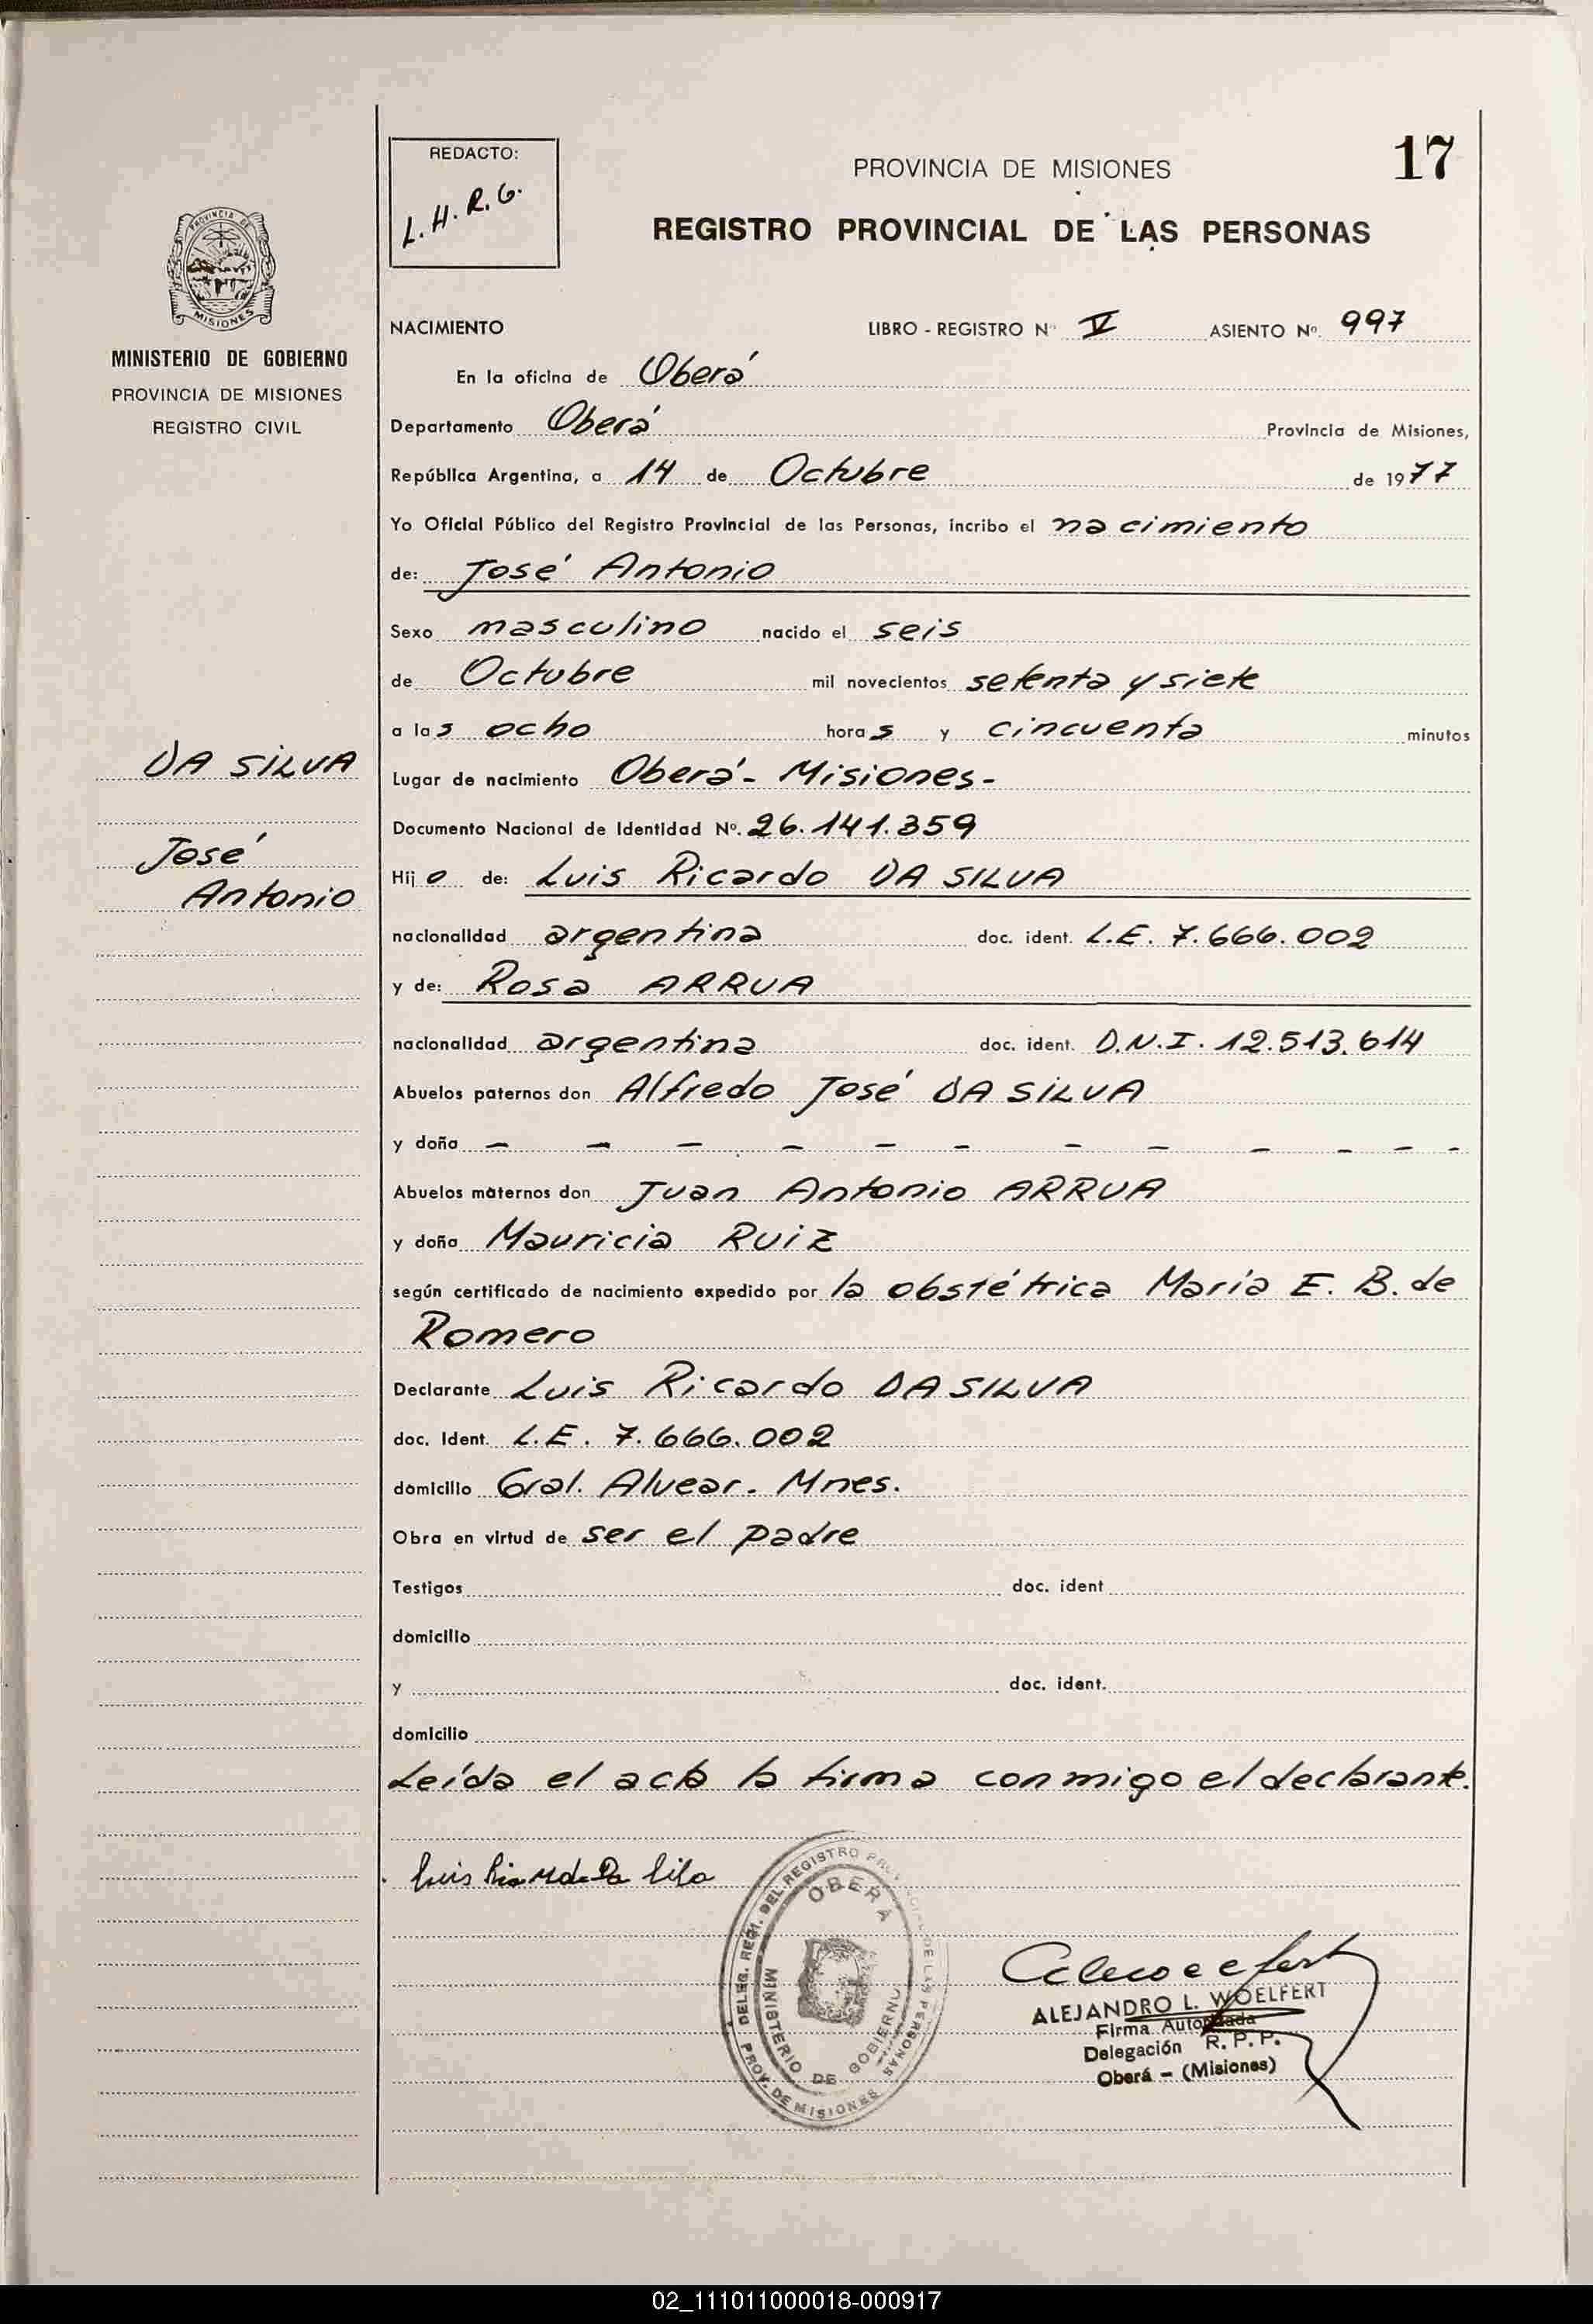 17
REDACTO:
L. H. R. G.
PROVINCIA DE MISIONES
REGISTRO PROVINCIAL DE LAS PERSONAS
PROVINCIA DE
MISIONES
MINISTERIO DE GOBIERNO
PROVINCIA DE MISIONES
REGISTRO CIVIL
NACIMIENTO LIBRO - REGISTRO Nº V ASIENTO Nº. 997
En la oficina de Oberá
Departamento Oberá Provincia de Misiones,
República Argentina, a 14 de Octubre de 1977
Yo Oficial Público del Registro Provincial de las Personas, incribo el nacimiento
de: José Antonio
Sexo masculino nacido el seis
de Octubre mil novecientos setenta y siete
a las ocho horas y cincuenta minutos
DA SILVA
José
Antonio
Lugar de nacimiento Oberá - Misiones -
Documento Nacional de Identidad Nº. 26.141.359
Hijo de: Luis Ricardo DA SILVA
nacionalidad argentina doc. ident. L.E. 7.666.002
y de: Rosa ARRUA
nacionalidad argentina doc. ident. D.N.I. 12.513.614
Abuelos paternos don Alfredo José DA SILVA
y doña - - - - - - - - - - - -
Abuelos maternos don Juan Antonio ARRUA
y doña Mauricia RUIZ
según certificado de nacimiento expedido por la obstétrica María E. B. de
Romero
Declarante Luis Ricardo DA SILVA
doc. Ident. L.E. 7.666.002
domicilio Gral. Alvear. Mnes.
Obra en virtud de ser el padre
Testigos doc. ident
domicilio
y doc. ident.
domicilio
Leída el acta la firma conmigo el declarante.
DELEG. REGI. DEL REGISTRO PROVINCIAL DE LAS PERSONAS
PROV. DE MISIONES
OBERÁ
MINISTERIO DE GOBIERNO
ALEJANDRO L. WOELFERT
Firma Autorizada
Delegación R. P. P.
Oberá - (Misiones)
02_111011000018-000917